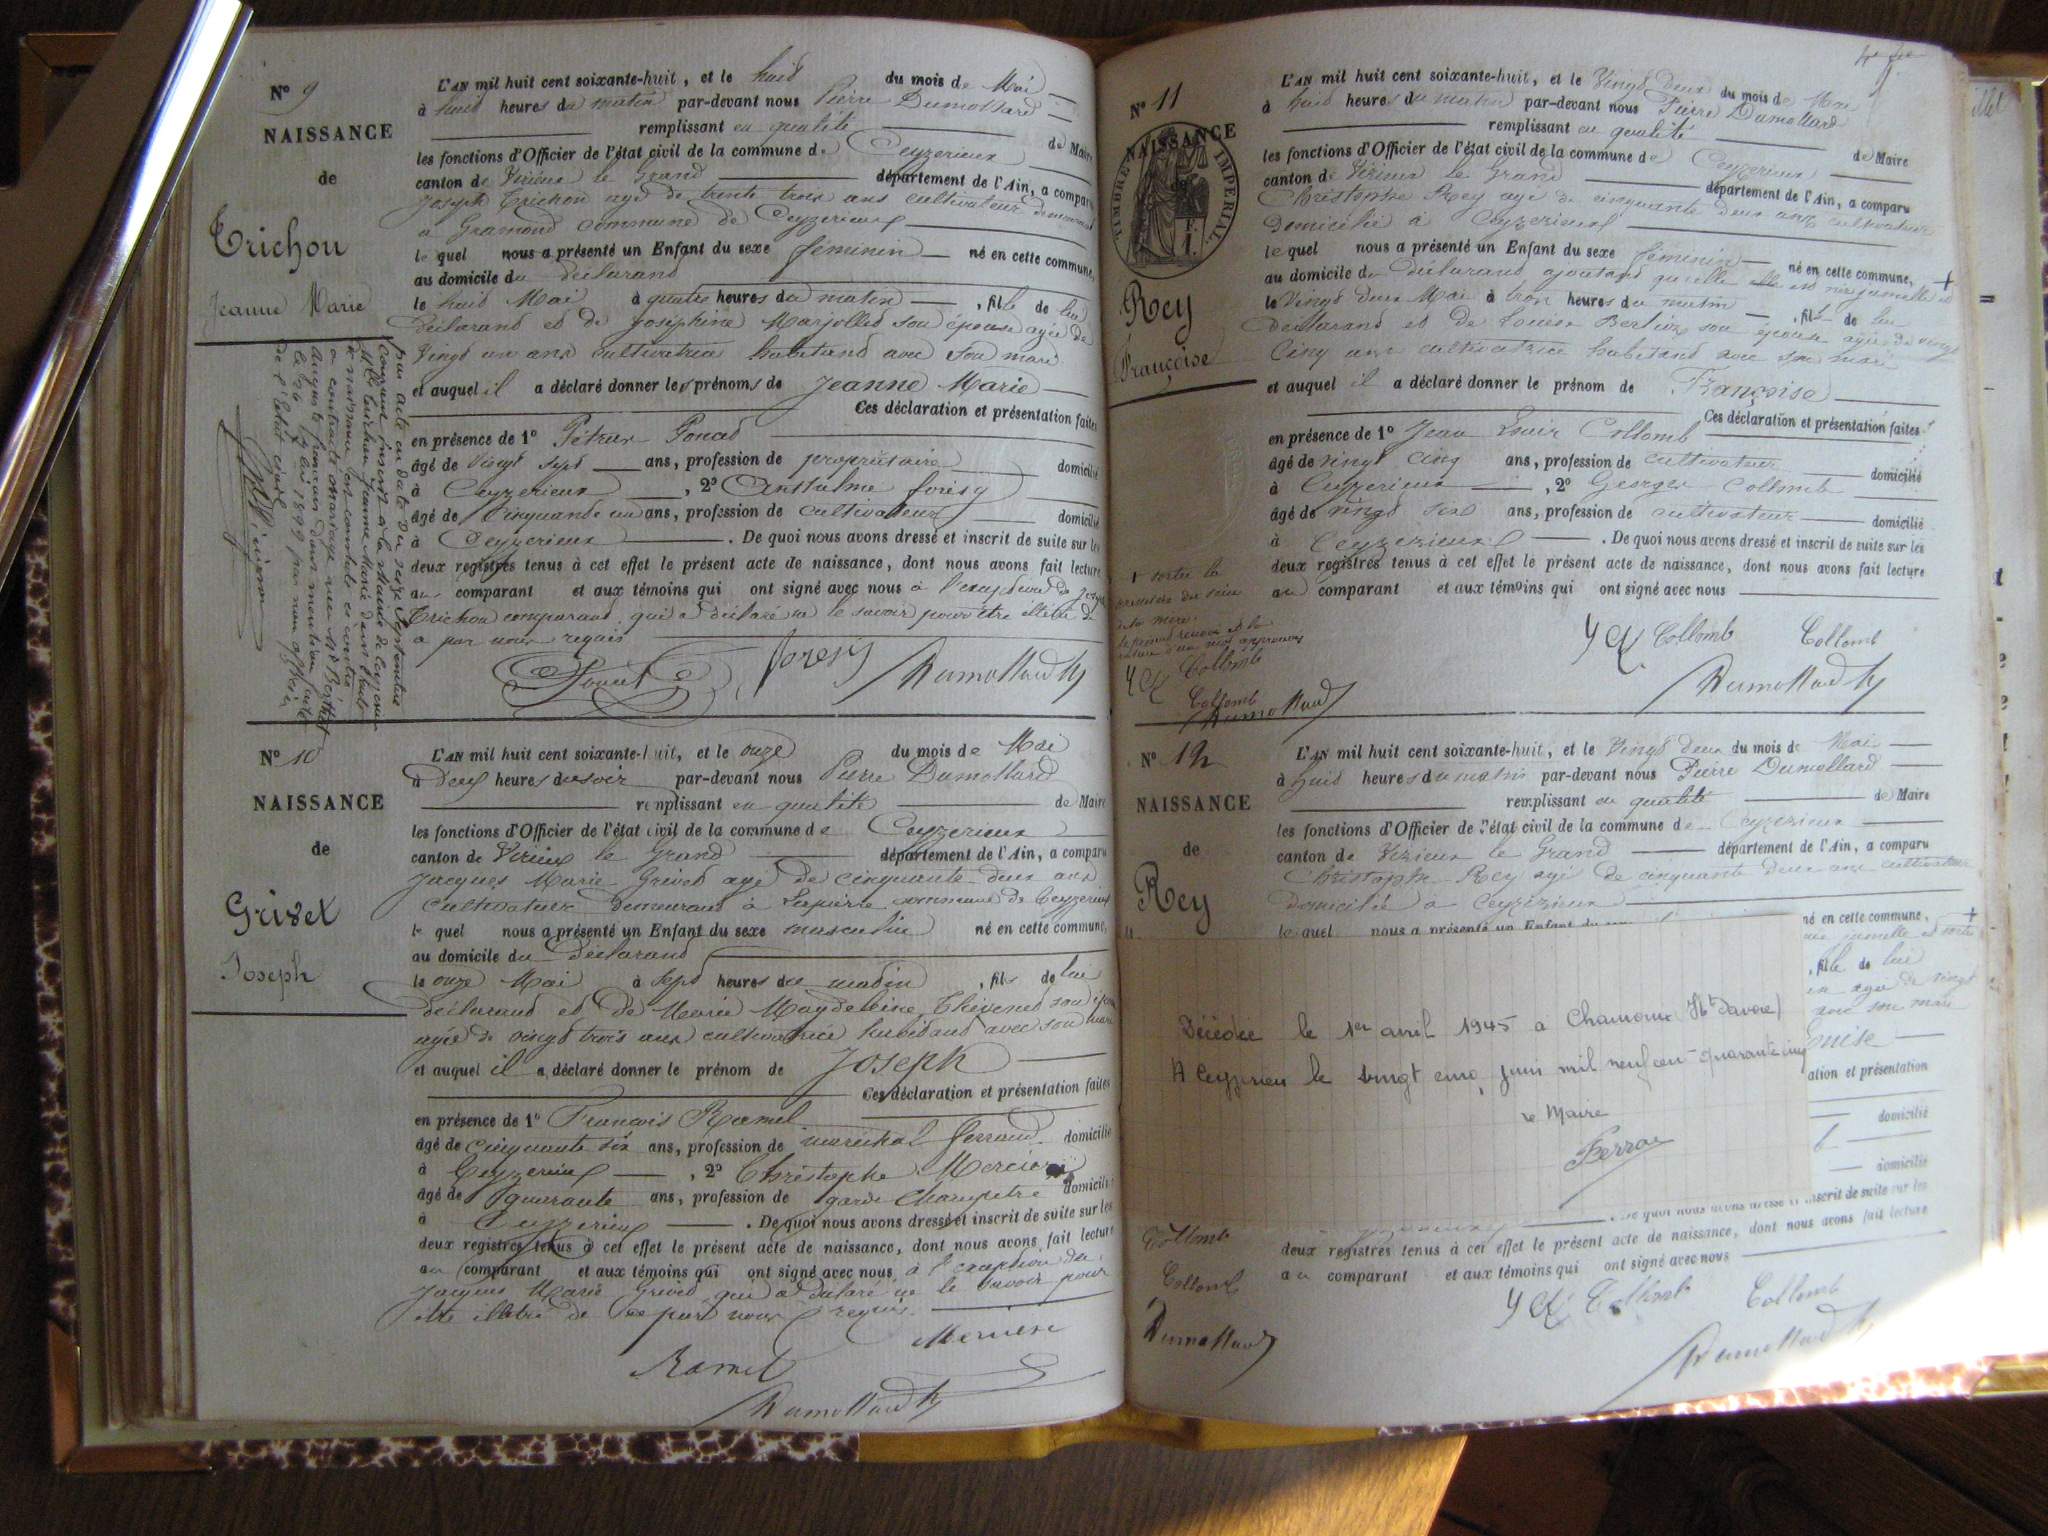 N° 9
NAISSANCE
de
Trichon
Jeanne Marie
L'AN mil huit cent soixante-huit, et le huit du mois de Mai
à huit heures du matin par-devant nous Pierre Dumollard
remplissant en qualité de Maire
les fonctions d'Officier de l'état civil de la commune de Ceyzerieux
canton de Virieux le Grand département de l'Ain, a comparu
Joseph Trichon agé de trente trois ans cultivateur demeurant
a Gramond commune de Ceyzerieux
le quel nous a présenté un Enfant du sexe féminin né en cette commune,
au domicile du déclarand
le huit Mai à quatre heures du matin, fille de lui
déclarand et de Joséphine Marjolled son épouse agée de
Vingt un ans cultivatrice habitand avec son mari
et auquel il a déclaré donner les prénoms de Jeanne Marie
Ces déclaration et présentation faites
en présence de 1° Pétrus Poncet
âgé de vingt sept ans, profession de propriétaire domicilié
à Ceyzerieux, 2° Anthelme forésy
âgé de Cinquante un ans, profession de cultivateur domicilié
à Ceyzerieux. De quoi nous avons dressé et inscrit de suite sur les
deux registres tenus à cet effet le présent acte de naissance, dont nous avons fait lecture
au comparant et aux témoins qui ont signé avec nous à l'exeption de Joseph
Trichon comparand qui a déclaré ne le savoir pour être illétré de
ce par nous requis
Poncet foresy Dumollard
N° 10
NAISSANCE
de
Grivet
Joseph
L'AN mil huit cent soixante-huit, et le onze du mois de Mai
à Deux heures du soir par-devant nous Pierre Dumollard
remplissant en qualité de Maire
les fonctions d'Officier de l'état civil de la commune de Ceyzerieux
canton de Virieux le Grand département de l'Ain, a comparu
Jacques Marie Grivet agé de cinquante deux ans
cultivateur demeurant à Lapierre commune de Ceyzerieux
le quel nous a présenté un Enfant du sexe masculin né en cette commune,
au domicile du Déclarand
le onze Mai à sept heures du matin, fils de lui
déclarand et de Marie Magdeleine Thévenet son épouse
agée de vingt trois ans cultivatrice habitand avec son mari
et auquel il a déclaré donner le prénom de Joseph
Ces déclaration et présentation faites
en présence de 1° François Ramel
âgé de cinquante six ans, profession de maréchal ferrand domicilié
à Ceyzerieux, 2° Christophe Mercier
âgé de quarante ans, profession de garde Champetre domicilié
à Ceyzerieux. De quoi nous avons dressé et inscrit de suite sur les
deux registres tenus à cet effet le présent acte de naissance, dont nous avons fait lecture
au comparant et aux témoins qui ont signé avec nous à l'exception de
Jacques Marie Grivet qui a déclaré ne le savoir pour
être illétré de ce par nous requis
Ramel Mercier
Dumollard
N° 11
NAISSANCE
de
TIMBRE IMPERIAL
Rey
Françoise
L'AN mil huit cent soixante-huit, et le Vingt deux du mois de Mai
à huit heures du matin par-devant nous Pierre Dumollard
remplissant en qualité de Maire
les fonctions d'Officier de l'état civil de la commune de Ceyzerieux
canton de Virieux le Grand département de l'Ain, a comparu
Christophe Rey agé de cinquante deux ans cultivateur
Domicilié à Ceyzerieux
le quel nous a présenté un Enfant du sexe féminin né en cette commune,
au domicile du déclarand ajoutand qu'elle elle est née jumelle et +
le Vingt deux Mai à trois heures du matin, fille de lui
déclarand et de Louise Berlioz son épouse agée de vingt
Cinq ans cultivatrice habitand avec son mari
et auquel il a déclaré donner le prénom de Françoise
Ces déclaration et présentation faites
en présence de 1° Jean Louis Collomb
âgé de vingt cinq ans, profession de cultivateur domicilié
à Ceyzerieux, 2° Georges Collomb
âgé de vingt six ans, profession de cultivateur domicilié
à Ceyzerieux. De quoi nous avons dressé et inscrit de suite sur les
deux registres tenus à cet effet le présent acte de naissance, dont nous avons fait lecture
au comparant et aux témoins qui ont signé avec nous
+ sortie la
première du sein
de la mère.
Collomb
Collomb
Dumollard
Collomb Collomb
Dumollard
N° 12
NAISSANCE
de
Rey
L'AN mil huit cent soixante-huit, et le Vingt deux du mois de Mai
à huit heures du matin par-devant nous Pierre Dumollard
remplissant en qualité de Maire
les fonctions d'Officier de l'état civil de la commune de Ceyzerieux
canton de Virieux le Grand département de l'Ain, a comparu
Christophe Rey agé de cinquante deux ans cultivateur
domicilié a Ceyzerieux
le quel nous a présenté un Enfant du né en cette commune, +
jumelle et sortie
, fille de lui
agée de vingt
avec son mari
ouise
ation et présentation
domicilié
domicilié
Décédée le 1er avril 1945 a Chamonix (Hte Savoie)
A Ceyzerieu le vingt cinq juin mil neuf cent quarante cinq
le Maire
Perroz
De quoi nous avons dressé et inscrit de suite sur les
deux registres tenus à cet effet le présent acte de naissance, dont nous avons fait lecture
au comparant et aux témoins qui ont signé avec nous
Collomb
Collomb
Dumollard
Collomb Collomb
Dumollard